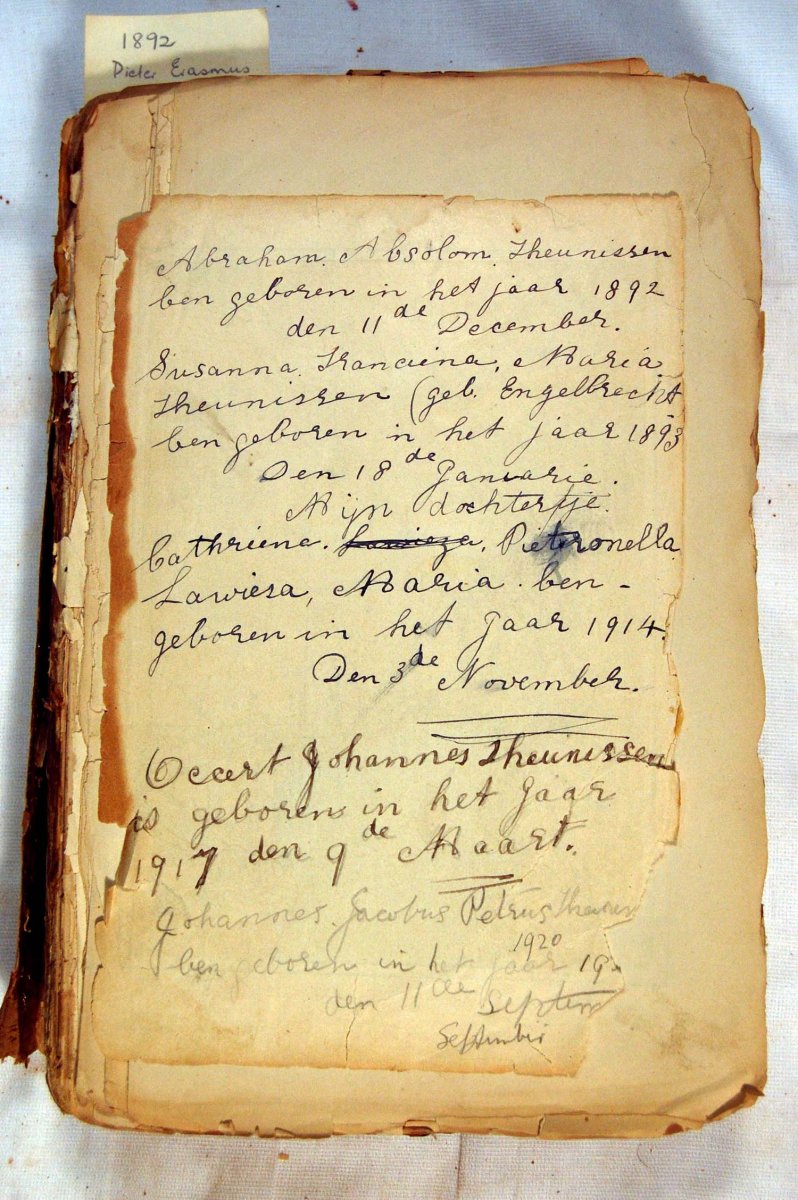 1892
Pieter Erasmus
Abraham. Absolom. Theunissen
ben geboren in het jaar 1892
den 11de December.
Susanna. Francina, Maria
Theunissen (geb. Engelbrecht
ben geboren in het jaar 1893
Den 18de Januarie.
Mijn dochtertje.
Cathriena. Pieteronella
Lawiesa, Maria. ben -
geboren in het jaar 1914.
Den 3de November.
Occert Johannes Theunissen
is geboren in het Jaar
1917 den 9de Maart.
Johannes. Jacobus Petrus Theunis
1920
ben geboren in het jaar 19
den 11de Septem
September